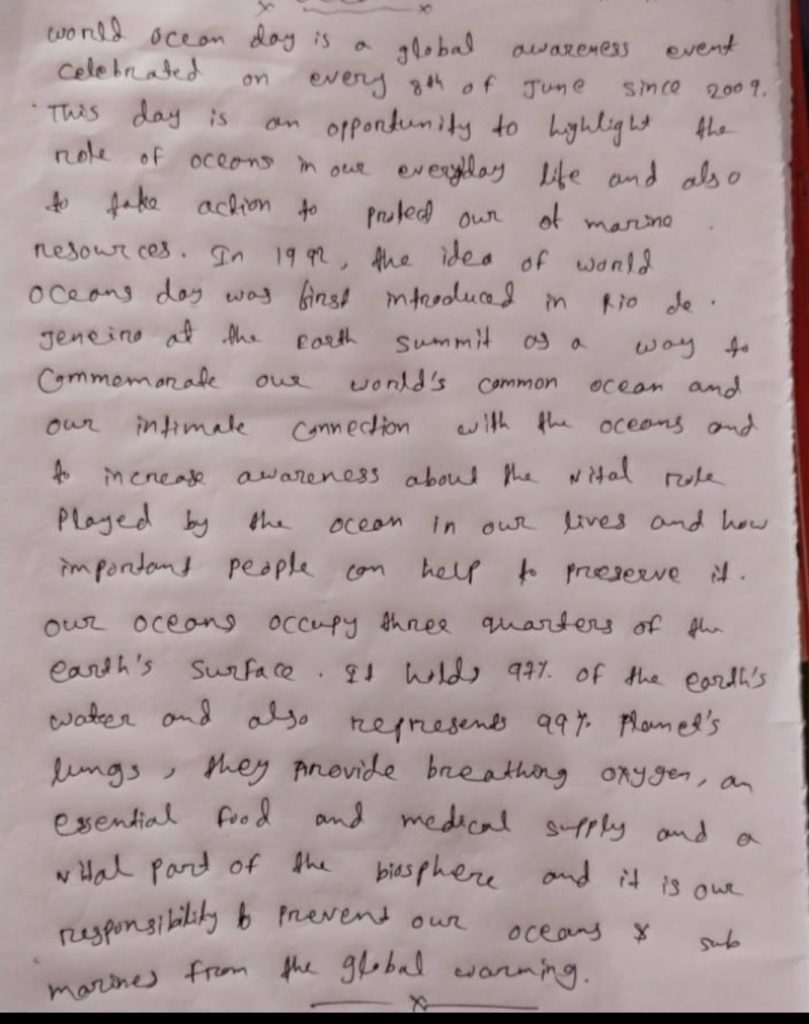 world ocean day is a global awareness event
celebrated on every 8th of June since 2009.
This day is an opportunity to highlight the
role of oceans in our everyday life and also
to take action to protect our of marine
resources. In 1992, the idea of world
oceans day was first introduced in Rio de
Jeneiro at the earth summit as a way to
Commemorate our world's common ocean and
our intimate connection with the oceans and
to increase awareness about the vital role
Played by the ocean in our lives and how
important people can help to preserve it.
our oceans occupy three quarters of the
earth's surface. It holds 97% of the earth's
water and also represents 99% Planet's
lungs, they provide breathing oxygen, an
essential food and medical supply and a
vital part of the biosphere and it is our
responsibility to prevent our oceans & sub
marines from the global warming.